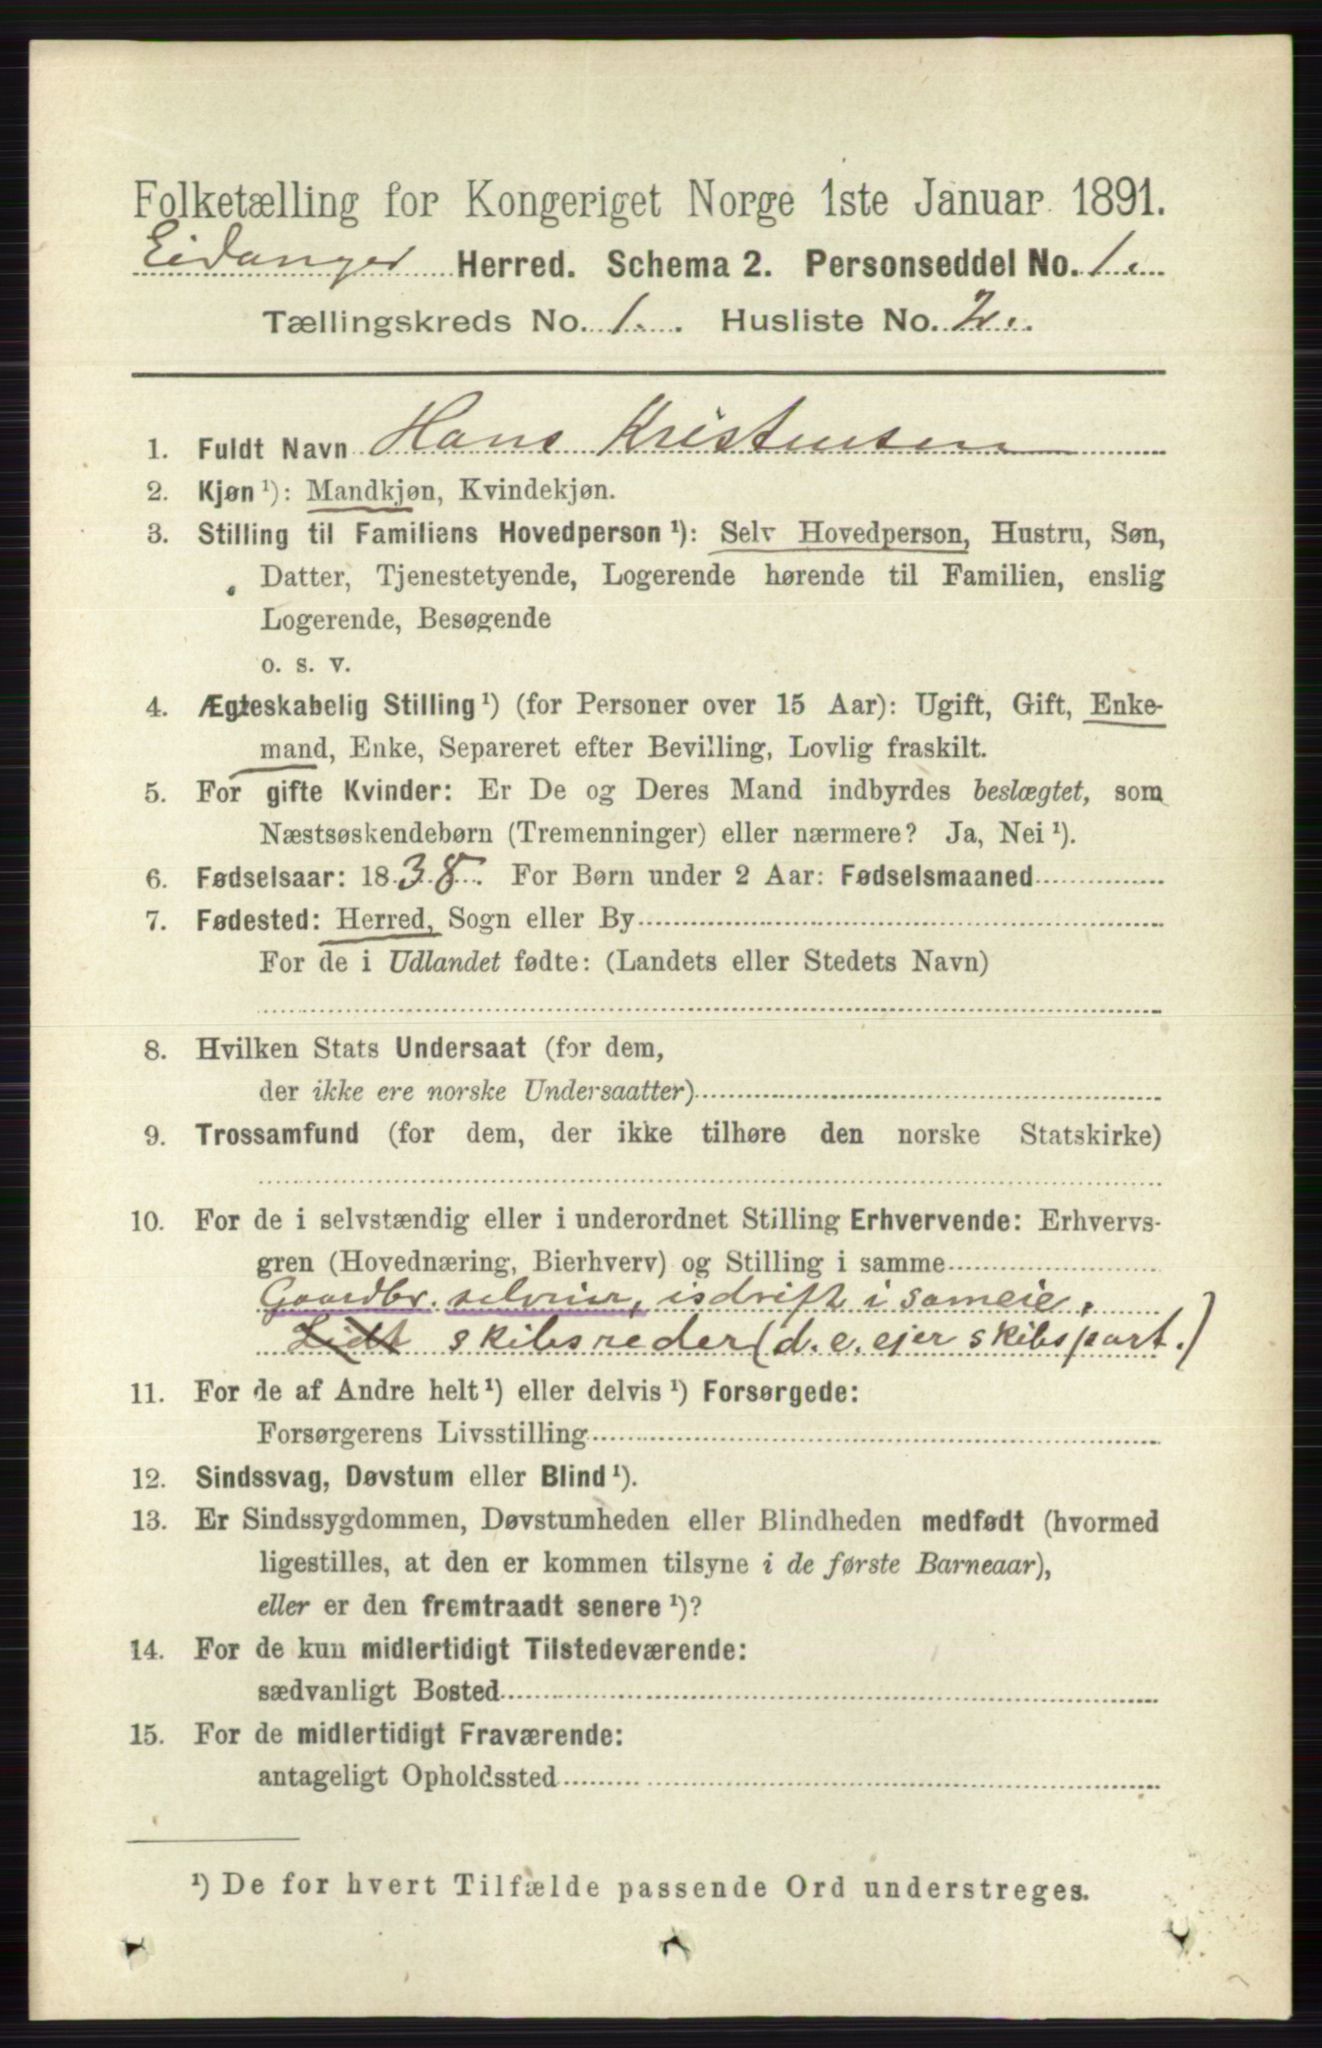 Folketælling for Kongeriget Norge 1ste Januar 1891.
Eidanger Herred. Schema 2. Personseddel No. 1.
Tællingskreds No. 1. Husliste No. 2.
1. Fuldt Navn Hans Kristensen
2. Kjøn ¹): Mandkjøn, Kvindekjøn.
3. Stilling til Familiens Hovedperson ¹): Selv Hovedperson, Hustru, Søn,
Datter, Tjenestetyende, Logerende hørende til Familien, enslig
Logerende, Besøgende
o. s. v.
4. Ægteskabelig Stilling ¹) (for Personer over 15 Aar): Ugift, Gift, Enke-
mand, Enke, Separeret efter Bevilling, Lovlig fraskilt.
5. For gifte Kvinder: Er De og Deres Mand indbyrdes beslægtet, som
Næstsøskendebørn (Tremenninger) eller nærmere? Ja, Nei ¹).
6. Fødselsaar: 1838. For Børn under 2 Aar: Fødselsmaaned
7. Fødested: Herred, Sogn eller By
For de i Udlandet fødte: (Landets eller Stedets Navn)
8. Hvilken Stats Undersaat (for dem,
der ikke ere norske Undersaatter)
9. Trossamfund (for dem, der ikke tilhøre den norske Statskirke)
10. For de i selvstændig eller i underordnet Stilling Erhvervende: Erhvervs-
gren (Hovednæring, Bierhverv) og Stilling i samme
Gaardbr. selveier, isdrift i sameie,
Lidt skibsreder (d. e. ejer skibspart.)
11. For de af Andre helt ¹) eller delvis ¹) Forsørgede:
Forsørgerens Livsstilling
12. Sindssvag, Døvstum eller Blind ¹).
13. Er Sindssygdommen, Døvstumheden eller Blindheden medfødt (hvormed
ligestilles, at den er kommen tilsyne i de første Barneaar),
eller er den fremtraadt senere ¹)?
14. For de kun midlertidigt Tilstedeværende:
sædvanligt Bosted
15. For de midlertidigt Fraværende:
antageligt Opholdssted
¹) De for hvert Tilfælde passende Ord understreges.